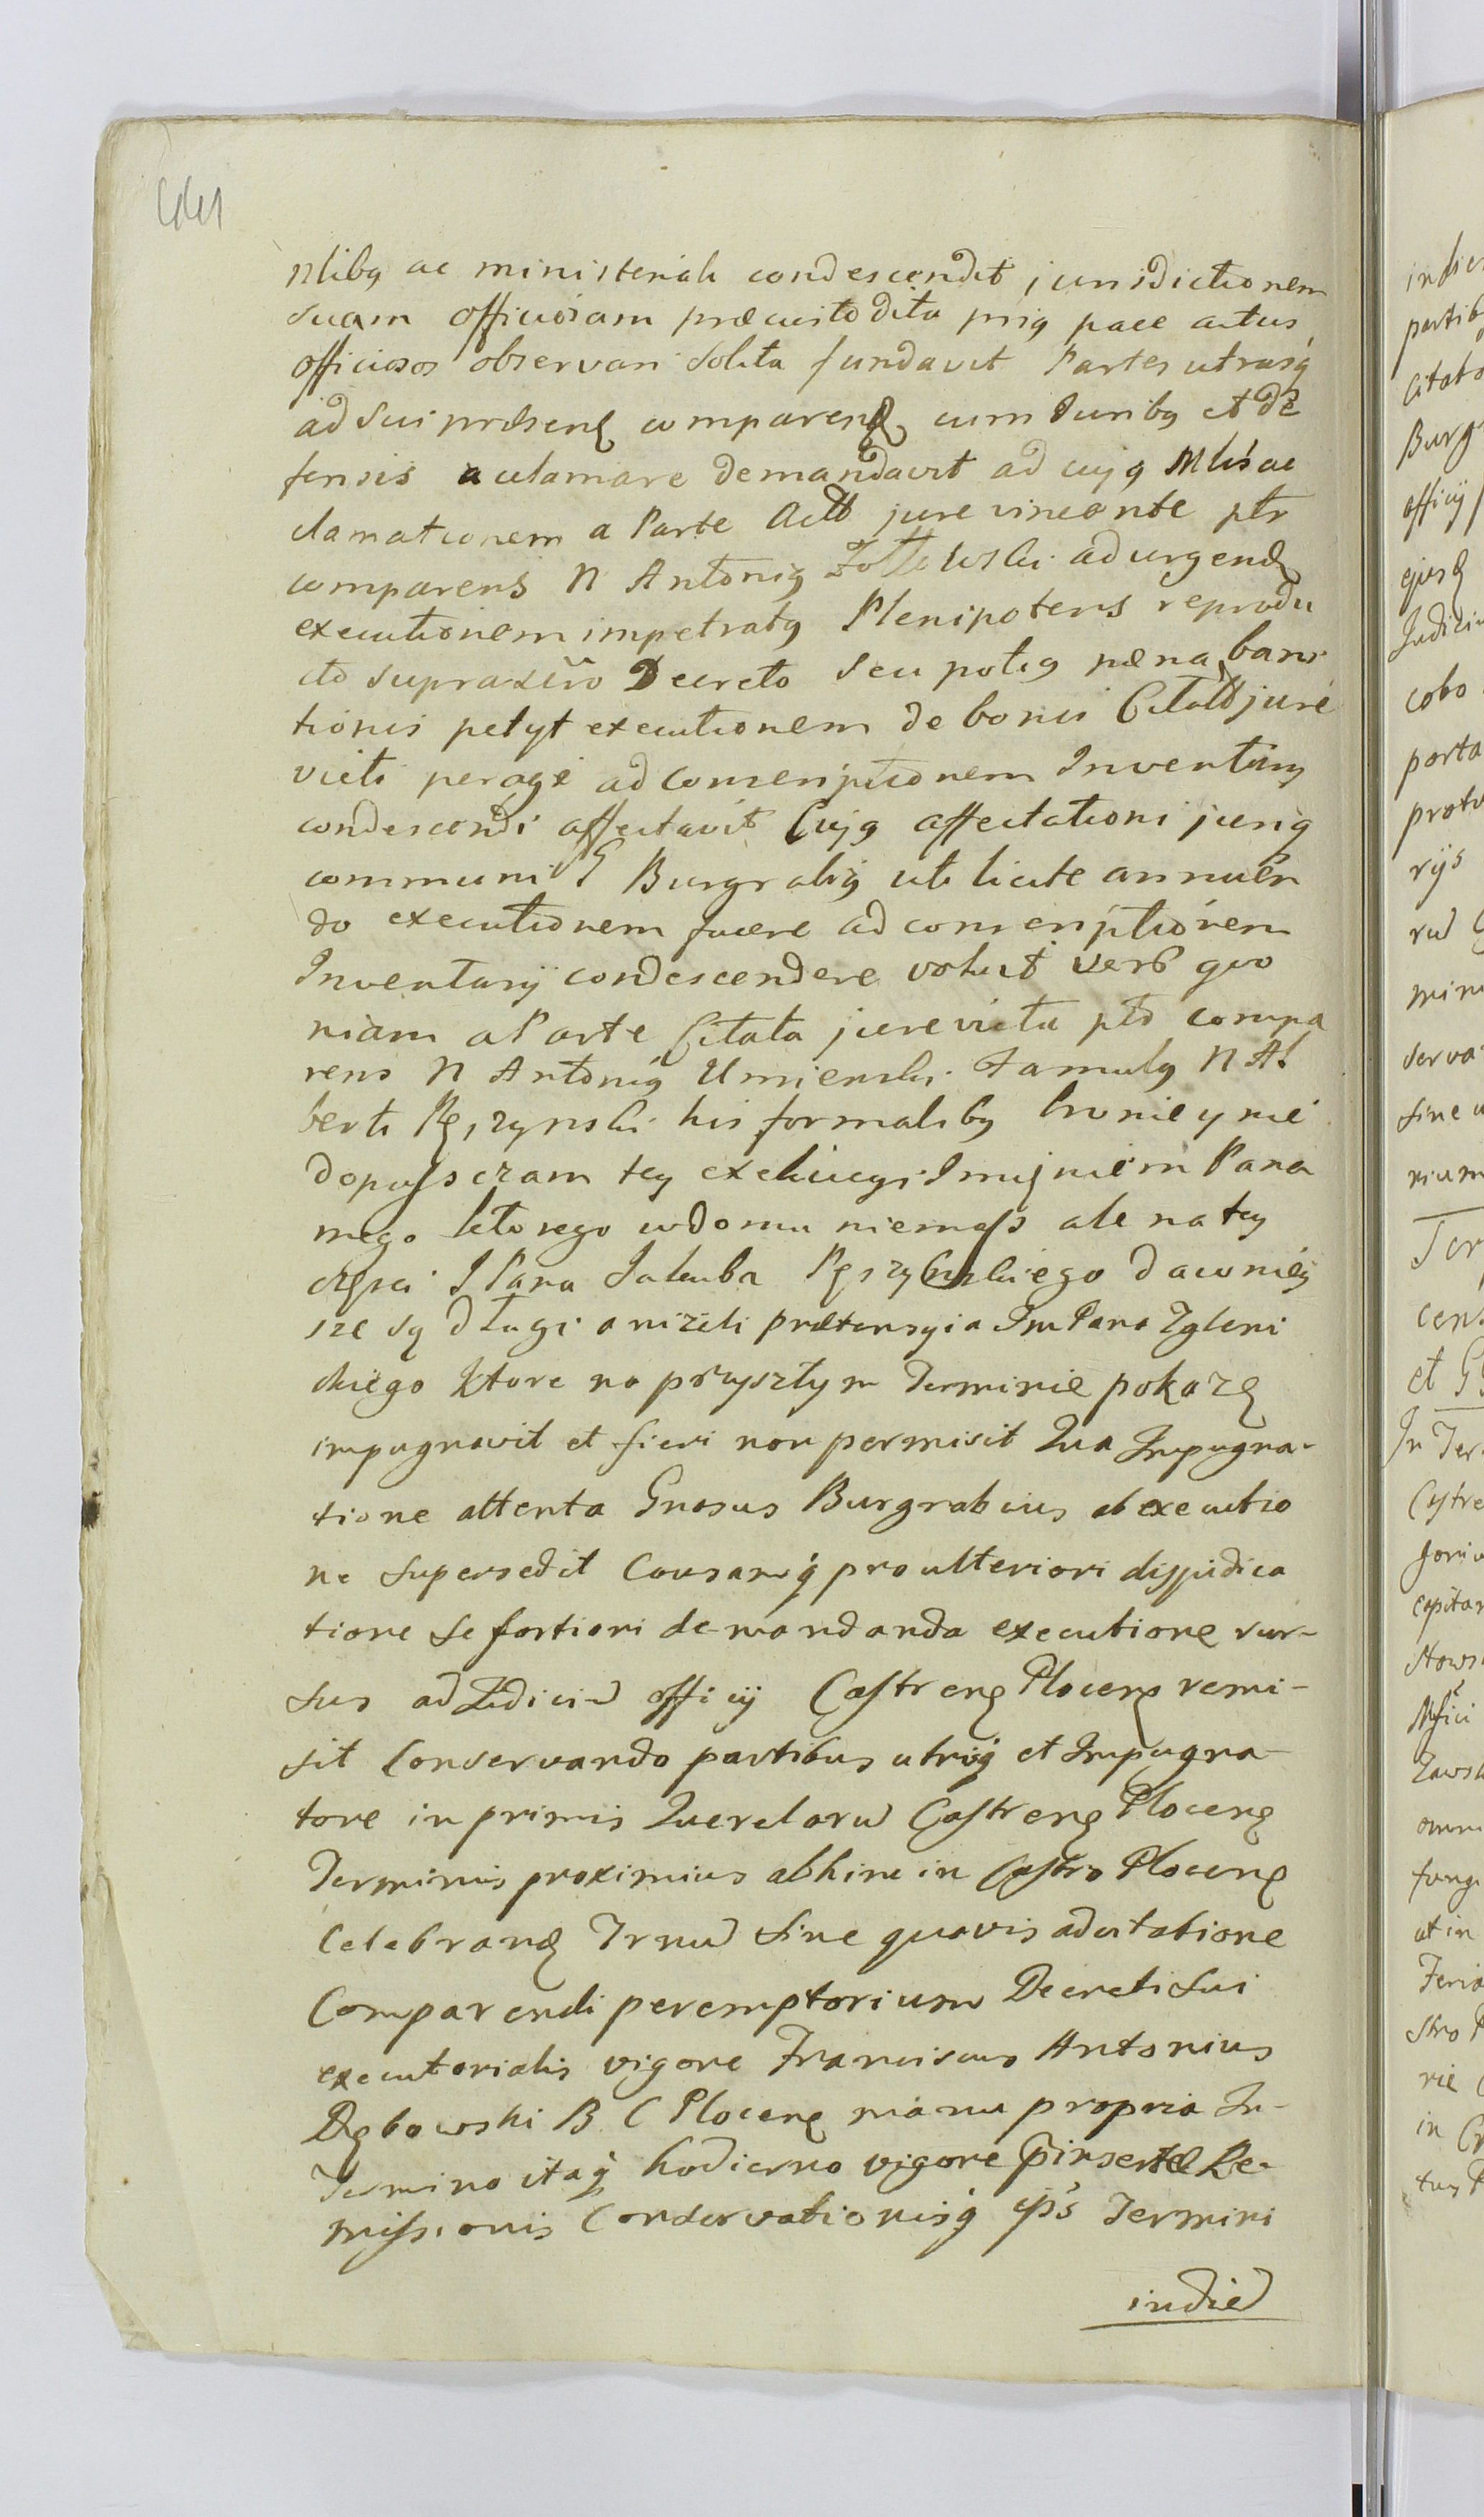 nlibq ac ministeriali condescendit jurisdictionem
suam officiosam præcustodita priq pace actus
officiosos observari solita fundavit Partes utrasq
ad sui præsenę comparenę cum Juribq et de
fensis aclamare demandavit ad cujq Mlis ac
clamationem a Parte Actt jure vincente ptr
comparens N Antoniq Zołtowski ad urgenę
executionem impetratq Plenipotens reprodu
cto supra xiiô Decreto seu potiq pæna banni
tionis petyt executionem de bonis Citatt jure
victi peragi ad conscriptionem Inventarÿ
condescendi affectavit Cujq affectationi juriq
communi G Burgrabiq uti licite annuen
do executionem facere ad conscriptionem
Inventarij condescendere voluit verô quo
niam a Parte Citata jure victa ptô compa
rens N Antoniq Umienski Famulq N Al
berti Pęszynski his formalibq bronię y nie
dopuſsczam tey exekucyi Imięniem Pana
mego ktorego w domu niemaſs ale na tey
częsci JPana Jakuba Pęszynskiego dawniey
sze są długi a niżeli prætensyia Jm Pana Zgleni
ckiego Ktore na przyszłym Terminie pokażę
impugnavit et fieri non permisit Qua Impugna-
tione attenta Gnosus Burgrabius ab executio
ne supersedit Causamq pro ulteriori dijudica
tione se fortiori demandanda executione rur-
sus ad Judiciu officij Castrenę Plocenę remi-
sit Conservando partibus utrisq et Impugna-
tore in primis Querelaru Castrenę Plocenę
Terminis proximius abhinc in Castro Plocenę
Celebranę Trnu sine quavis adcitatione
Comparendi peremptorium Decreti sui
executorialis vigore Franciscus Antonius
Dębowski B C Plocenę manu propria In
Termino itaq hodierno vigore Pinsertæ Re-
miſsionis Conservationisq ips Termini
indied